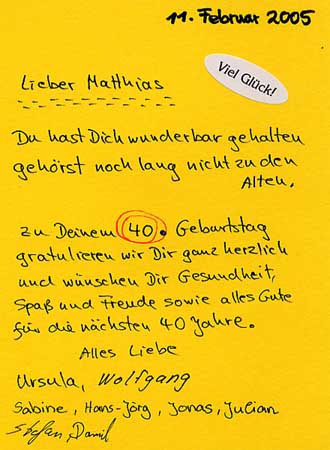 11. Februar 2005
Viel Glück!
Lieber Matthias
Du hast Dich wunderbar gehalten
gehörst noch lang nicht zu den
Alten.
zu Deinem 40. Geburtstag
gratulieren wir Dir ganz herzlich
und wünschen Dir Gesundheit,
Spaß und Freude sowie alles Gute
für die nächsten 40 Jahre.
Alles Liebe
Ursula, Wolfgang
Sabine, Hans-Jörg, Jonas, Julian
Stefan, Daniel